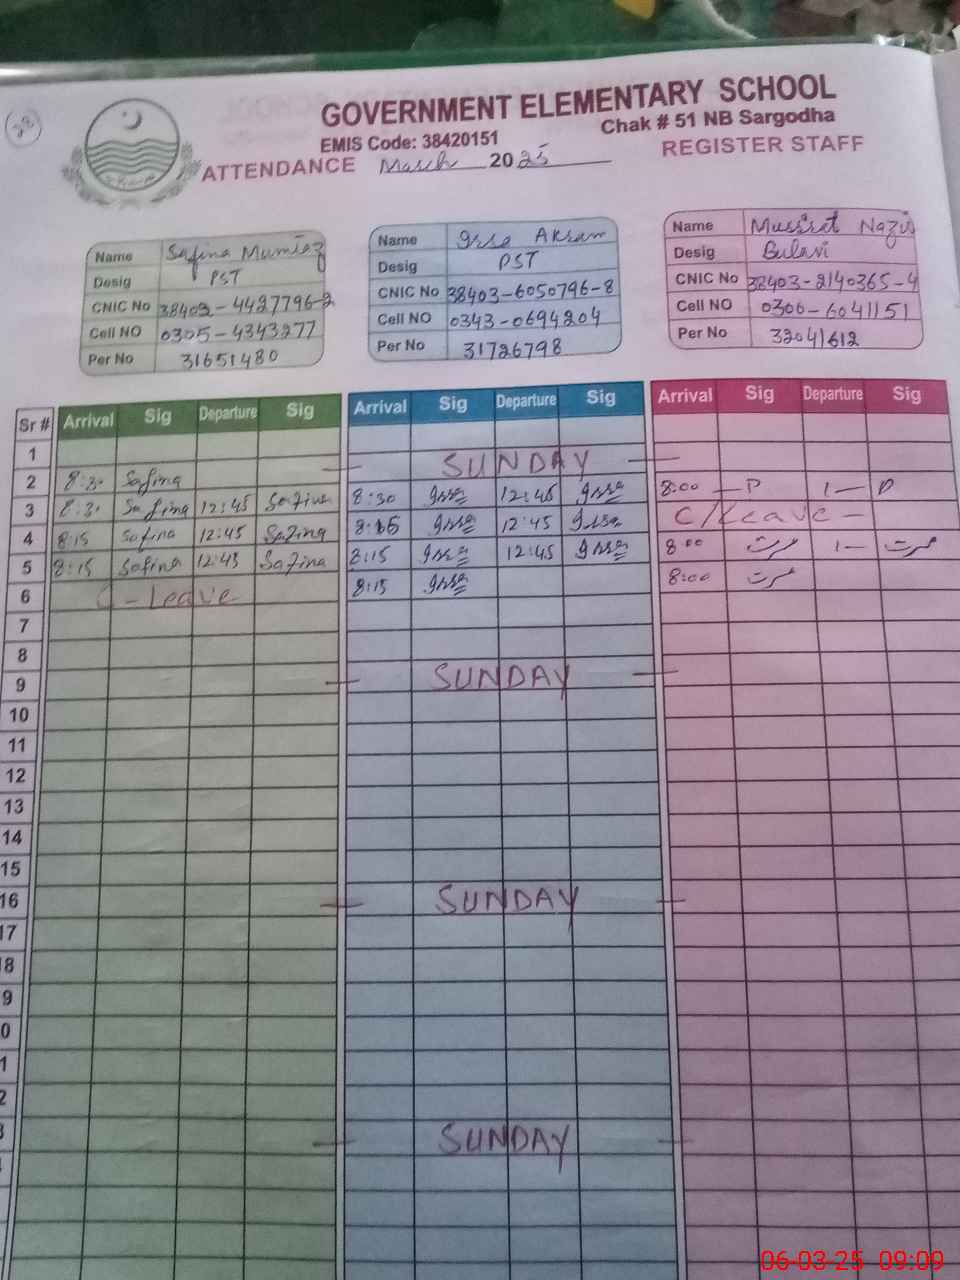 28
GOVERNMENT ELEMENTARY SCHOOL
EMIS Code: 38420151 Chak # 51 NB Sargodha
ATTENDANCE March 2025 REGISTER STAFF
Name Safina Mumtaz
Desig PST
CNIC No 38403-4427796-2
Cell NO 0305-4343277
Per No 31651480
Name Irsa Akram
Desig PST
CNIC No 38403-6050796-8
Cell NO 0343-0694204
Per No 31726798
Name Mussrat Nazir
Desig Bulavi
CNIC No 38403-2140365-4
Cell NO 0306-6041151
Per No 32041612
Sr # Arrival Sig Departure Sig Arrival Sig Departure Sig Arrival Sig Departure Sig
1
SUNDAY
2 8:30 Safina
3 8:30 Safina 12:45 Safina 8:30 Irsa 12:45 Irsa 8:00 P 1— P
4 8:15 Safina 12:45 Safina 8:15 Irsa 12:45 Irsa C/Leave -
5 8:15 Safina 12:45 Safina 8:15 Irsa 12:45 Irsa 8:00 مسرت 1— مسرت
6 C - Leave 8:15 Irsa 8:00 مسرت
7
8
9 SUNDAY
10
11
12
13
14
15
16 SUNDAY
17
8
9
0
1
2
3 SUNDAY
06-03-25 09:09